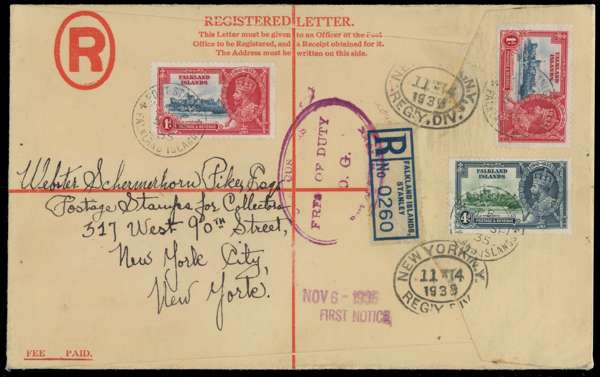 REGISTERED LETTER.
This Letter must be given to an Officer of the Post
Office to be Registered, and a Receipt obtained for it.
The Address must be written on this side.
R
FALKLAND ISLANDS
1d
FALKLAND ISLANDS
1d
N.Y.
REG'Y. DIV.
FALKLAND ISLANDS
4d
FREE OF DUTY
O. G.
R
No 0260
FALKLAND ISLANDS,
STANLEY
Webster Schermerhorn Pikes, Esq.
Postage Stamps for Collectors
517 West 90th Street,
New York City,
New York.
NEW YORK, N.Y.
1935
REG'Y. DIV.
NOV 6 - 1935
FIRST NOTICE
FEE PAID.